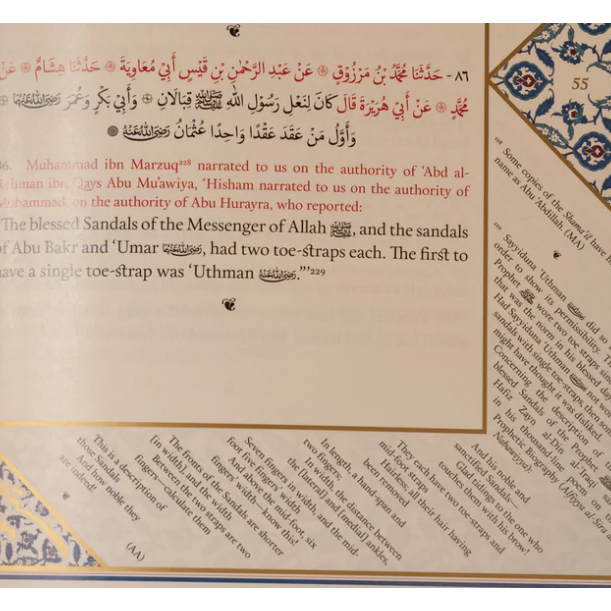 ٨٦ - حَدَّثَنَا مُحَمَّدُ بْنُ مَرْزُوْقٍ عَنْ عَبْدِ الرَّحْمٰنِ بْنِ قَيْسٍ أَبِيْ مُعَاوِيَةَ حَدَّثَنَا هِشَامٌ عَنْ
مُحَمَّدٍ عَنْ أَبِيْ هُرَيْرَةَ قَالَ كَانَ لِنَعْلِ رَسُوْلِ اللهِ ﷺ قِبَالَانِ وَأَبِيْ بَكْرٍ وَعُمَرَ
وَأَوَّلُ مَنْ عَقَدَ عَقْدًا وَاحِدًا عُثْمَانُ
86. Muhammad ibn Marzuq²²⁸ narrated to us on the authority of ‘Abd al-
Rahman ibn Qays Abu Mu‘awiya, ‘Hisham narrated to us on the authority of
Muhammad, on the authority of Abu Hurayra, who reported:
The blessed Sandals of the Messenger of Allah ﷺ, and the sandals
of Abu Bakr and ‘Umar, had two toe-straps each. The first to
have a single toe-strap was ‘Uthman.”’²²⁹
55
²²⁸ Some copies of the Shama’il have his
name as Abu ‘Abdillah. (MA)
²²⁹ Sayyiduna ‘Uthman did so
order to show its permissibility. The
Prophet ﷺ wore two toe straps since
that was the norm in his blessed day.
Had Sayyiduna ‘Uthman not
sandals with single toe-straps, then some
might have thought it was disliked.
Concerning the description of the
blessed Sandals of the Prophet ﷺ
Hafiz Zayn al-Din al-‘Iraqi
in his thousand-line poem on
Prophetic Biography (Alfiyya al-Sira
Nabawiyya).
And his noble, and
sanctified Sandals—
Glad tidings to the one who
touches them with his brow!
They each have two toe-straps and
mid-foot straps
Hairless, all their hair having
been removed
In length, a hand-span and
two fingers;
In width, the distance between
the [lateral] and [medial] ankles,
Seven fingers in width, and the mid-
foot five fingers’ width
And above the mid foot, six
fingers’ width—know this!
The fronts of the Sandals are shorter
[in width], and the width
Between the two straps are two
fingers—calculate them
This is a description of
those Sandals
And how noble they
are indeed!
(AA)